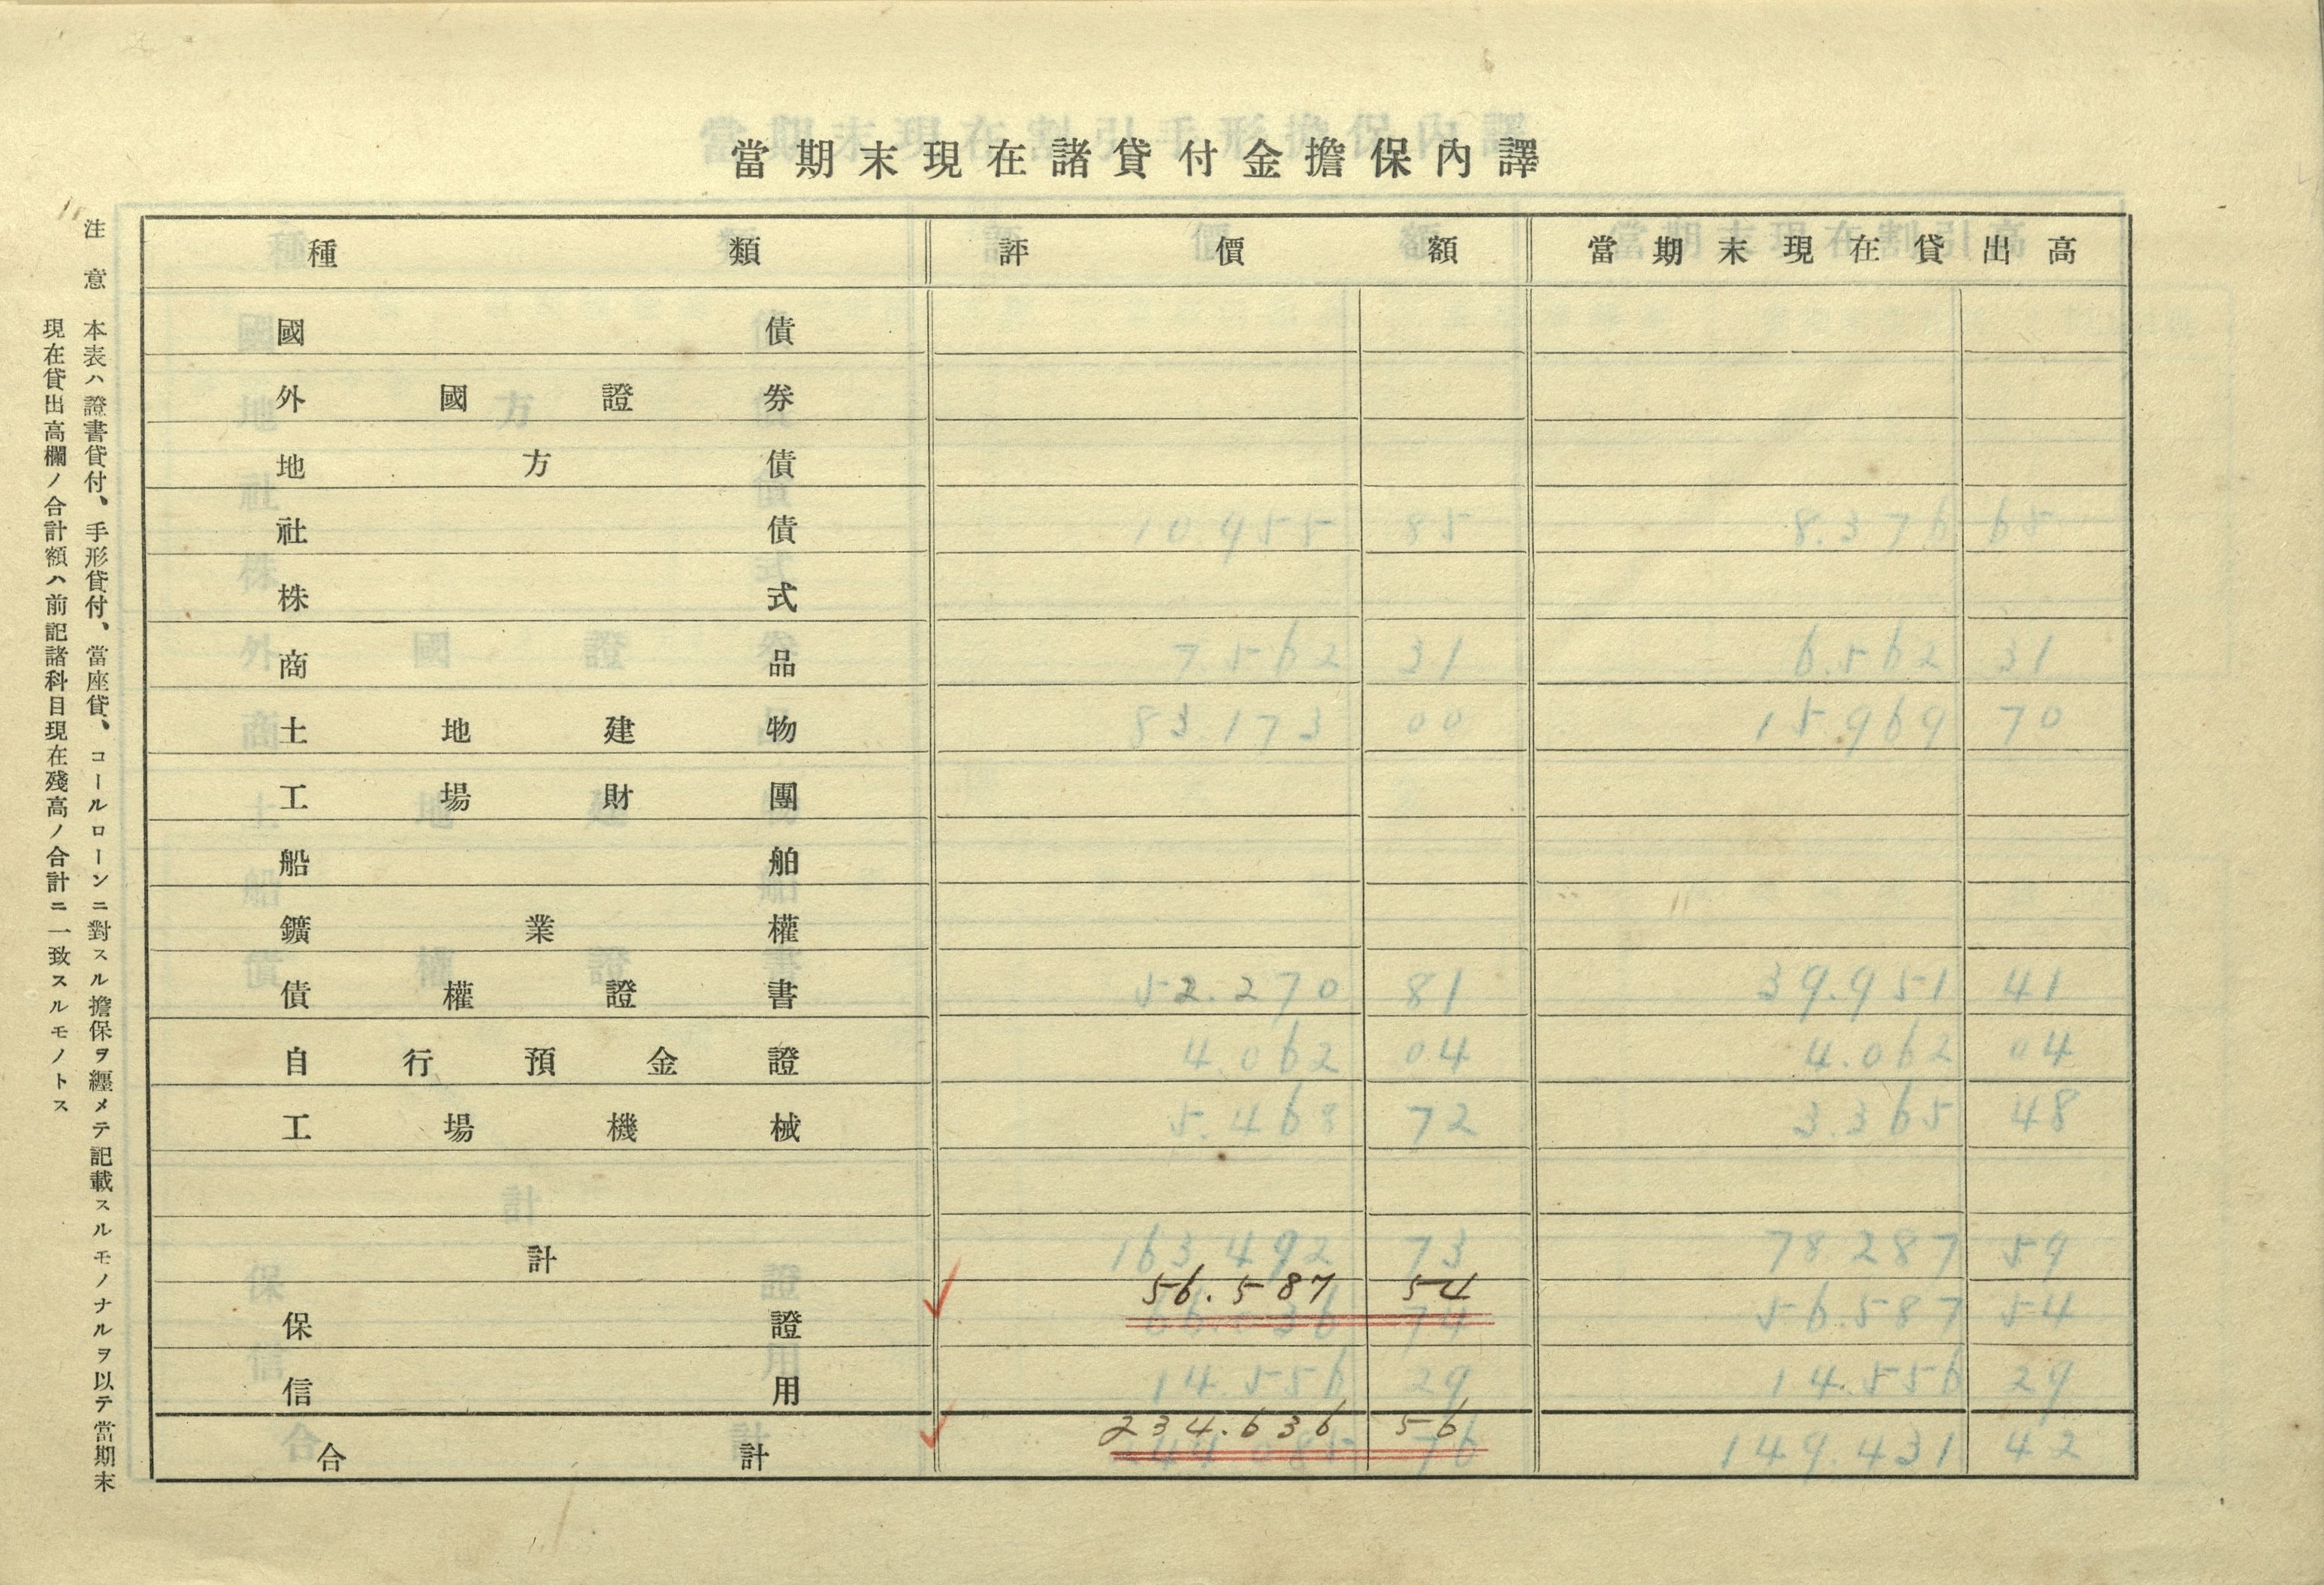 當期末現在諸貸付金擔保內譯
種類 評價額 當期末現在貸出高
國債
外國證券
地方債
社債 10.955 85 8.376 65
株式
商品 7.562 31 6.562 31
土地建物 83.173 00 15.969 70
工場財團
船舶
鑛業權
債權證書 52.270 81 39.951 41
自行預金證 4.062 04 4.062 04
工場機械 5.468 72 3.365 48
計 163.492 73 78.287 59
56.587 54
保證 66.036 74 56.587 54
信用 14.556 29 14.556 29
234.636 56
合計 244.085 76 149.431 42
注意 本表ハ證書貸付、手形貸付、當座貸、コールローンニ對スル擔保ヲ纒メテ記載スルモノナルヲ以テ當期末
現在貸出高欄ノ合計額ハ前記諸科目現在殘高ノ合計ニ一致スルモノトス